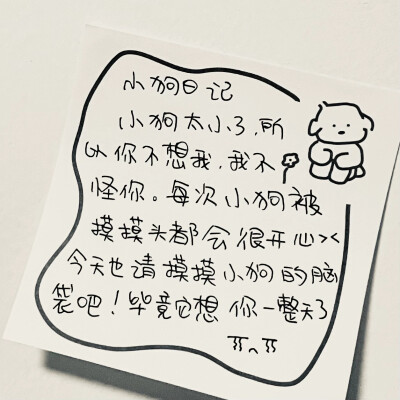 小狗日记
小狗太小了,所
以你不想我,我不
怪你。每次小狗被
摸摸头都会很开心><
今天也请摸摸小狗的脑
袋吧!毕竟它想你一整天了
ㅠ^ㅠ